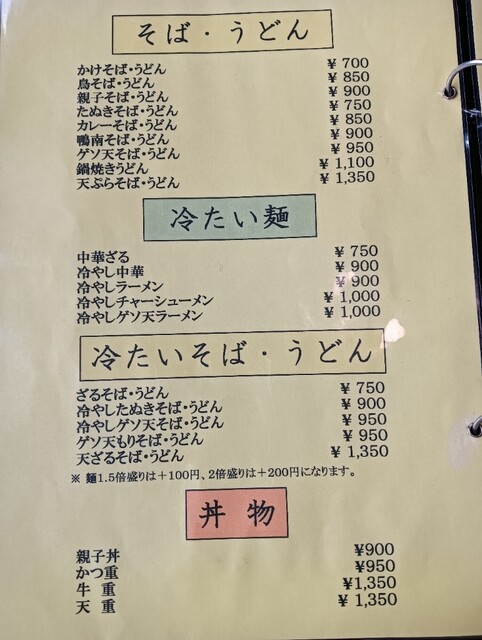 そば・うどん
かけそば・うどん ¥ 700
鳥そば・うどん ¥ 850
親子そば・うどん ¥ 900
たぬきそば・うどん ¥ 750
カレーそば・うどん ¥ 850
鴨南そば・うどん ¥ 900
ゲソ天そば・うどん ¥ 950
鍋焼きうどん ¥ 1,100
天ぷらそば・うどん ¥ 1,350
冷たい麺
中華ざる ¥ 750
冷やし中華 ¥ 900
冷やしラーメン ¥ 900
冷やしチャーシューメン ¥ 1,000
冷やしゲソ天ラーメン ¥ 1,000
冷たいそば・うどん
ざるそば・うどん ¥ 750
冷やしたぬきそば・うどん ¥ 900
冷やしゲソ天そば・うどん ¥ 950
ゲソ天もりそば・うどん ¥ 950
天ざるそば・うどん ¥ 1,350
※ 麺1.5倍盛りは＋100円、2倍盛りは＋200円になります。
丼物
親子丼 ¥900
かつ重 ¥950
牛 重 ¥1,350
天 重 ¥ 1,350